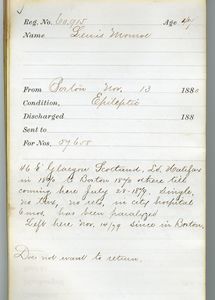 Reg. No. 60,915 Age 47
Name Lewis Monroe
From Boston Nov. 13 188
Condition, Epileptic
Discharged 188
Sent to
For Nos. 57655
46 G Glasgow Scotland, Ld. Halifax
in 18 to Boston 18 there till
coming here July 28-1879. Single,
no trs, no rels, in city hospital
6 mos. has been paralyzed
Left here Nov. 14/79 since in Boston.
Does not want to return.